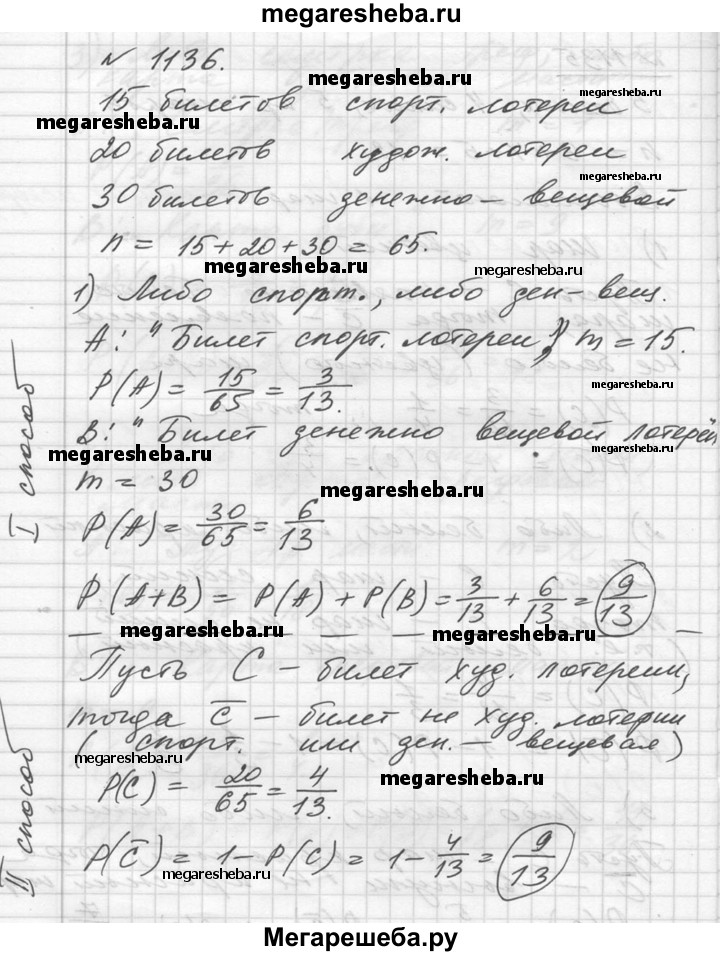 megaresheba.ru
№ 1136.
megaresheba.ru
15 билетов спорт. лотереи
megaresheba.ru
20 билетов худож. лотереи
megaresheba.ru
30 билетов денежно – вещевой
n = 15 + 20 + 30 = 65.
megaresheba.ru
megaresheba.ru
1) Либо спорт., либо ден – вещ.
A: "Билет спорт. лотереи", m = 15.
P(A) = 15/65 = 3/13.
megaresheba.ru
B: "Билет денежно вещевой лотереи
megaresheba.ru
m = 30
megaresheba.ru
P(A) = 30/65 = 6/13
I способ
megaresheba.ru
P(A+B) = P(A) + P(B) = 3/13 + 6/13 = 9/13
megaresheba.ru
megaresheba.ru
Пусть C – билет худ. лотереии,
тогда C̅ – билет не худ. лотерии
( спорт. или ден. – вещевая)
megaresheba.ru
megaresheba.ru
P(C) = 20/65 = 4/13.
megaresheba.ru
megaresheba.ru
P(C̅) = 1 – P(C) = 1 – 4/13 = 9/13
II способ
megaresheba.ru
Мегарешеба.ру